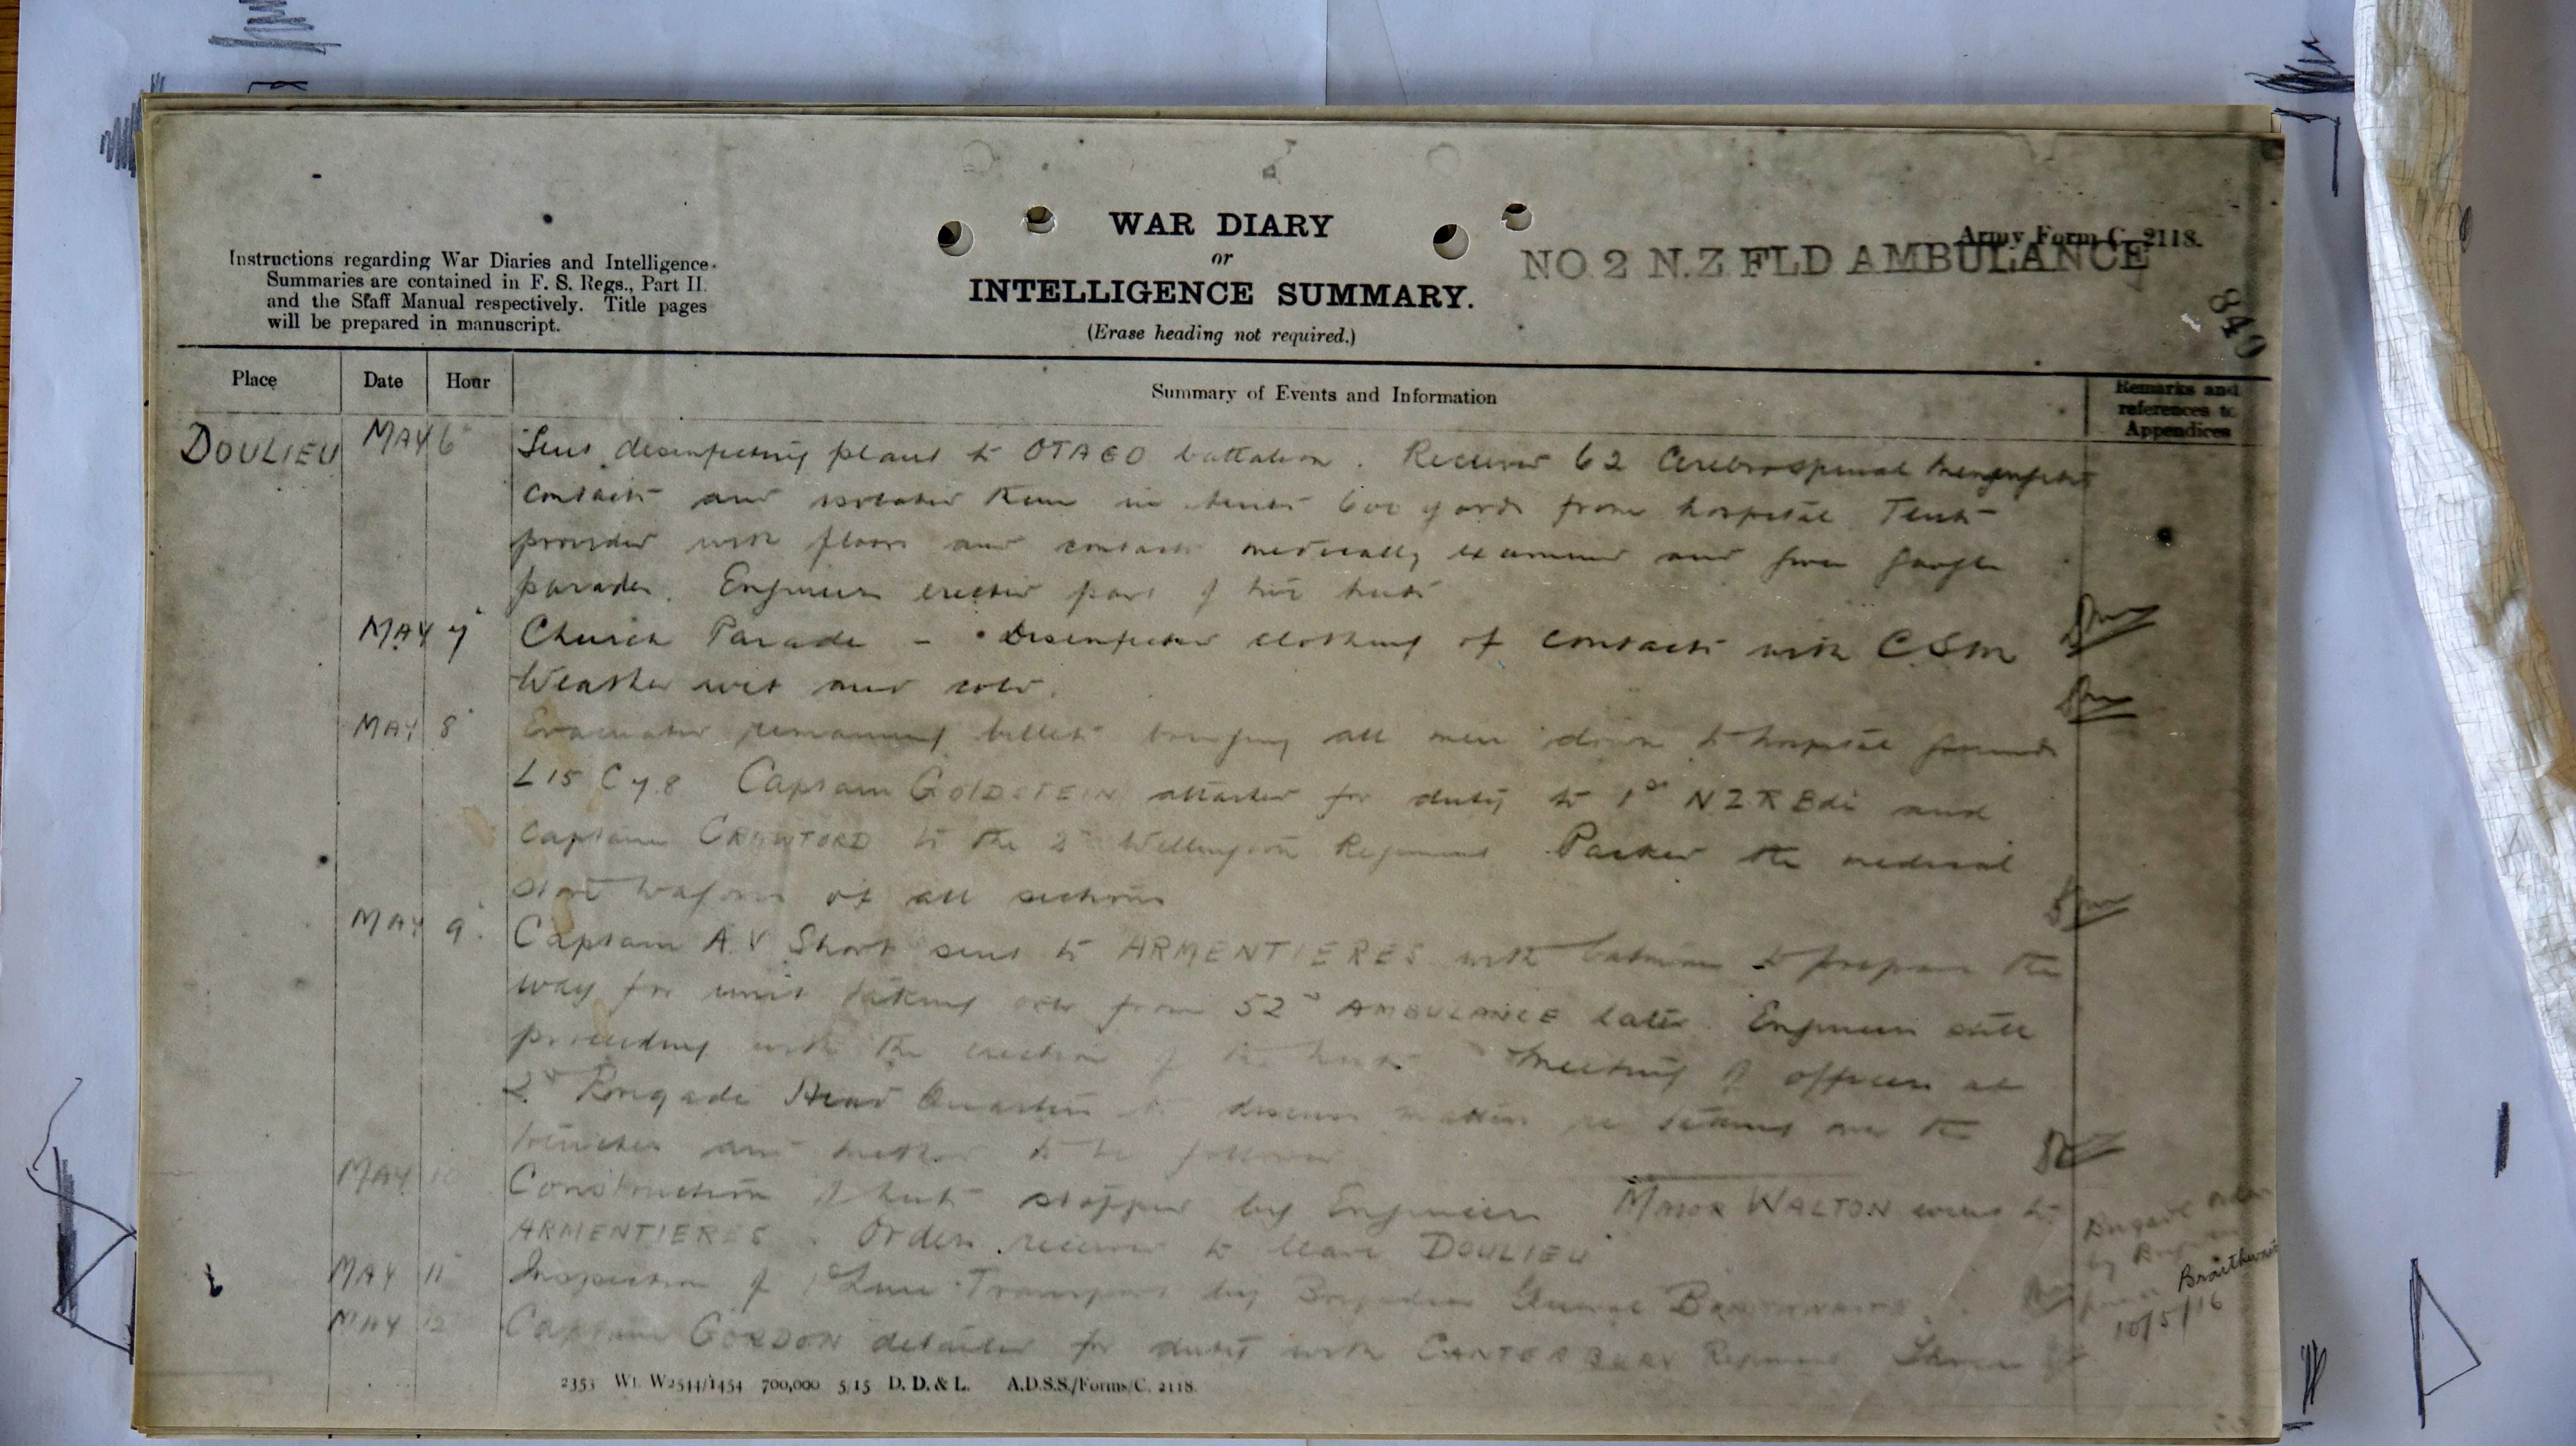 WAR DIARY
or
INTELLIGENCE SUMMARY.
(Erase heading not required.)
Instructions regarding War Diaries and Intelligence
Summaries are contained in F. S. Regs., Part II.
and the Staff Manual respectively. Title pages
will be prepared in manuscript.
Army Form C. 2118.
NO 2 N.Z FLD AMBULANCE
840
Place Date Hour Summary of Events and Information Remarks and references to Appendices
DOULIEU MAY 6 Sent disinfecting plant to OTAGO battalion. Received 62 Cerebrospinal Meningitis
contacts and isolated them in tents 600 yards from hospital Tents
provided with floors and contacts medically examined and given gargle
parades. Engineers erected part of two huts
MAY 7 Church Parade - Disinfected clothing of contacts with C.S.M
Weather wet and cold.
MAY 8 Evacuated remaining billets bringing all men down to hospital grounds
L 15 C 7.8 Captain GOLDSTEIN attached for duty to 1st N Z R Bde and
Captain CRAWFORD to the 2nd Wellington Regiment Packed the medical
store wagons of all sections
MAY 9 Captain A.V Short sent to ARMENTIERES with batman to prepare the
way for unit taking over from 52nd AMBULANCE later. Engineers still
proceeding with the erection of the huts. Meeting of officers at
2nd Brigade Head Quarters to discuss matters re taking over the
trenches and method to be followed
MAY 10 Construction of huts stopped by Engineers MAJOR WALTON went to
ARMENTIERES. Orders received to leave DOULIEU
Brigade order
by
Braithwaite
10/5/16
MAY 11 Inspection of 1st Line Transport by Brigadier General BRAITHWAITE.
MAY 12 Captain GORDON detailed for duty with CANTERBURY Regiment
2353 Wt. W2544/1454 700,000 5/15 D. D. & L. A.D.S.S./Forms/C. 2118.